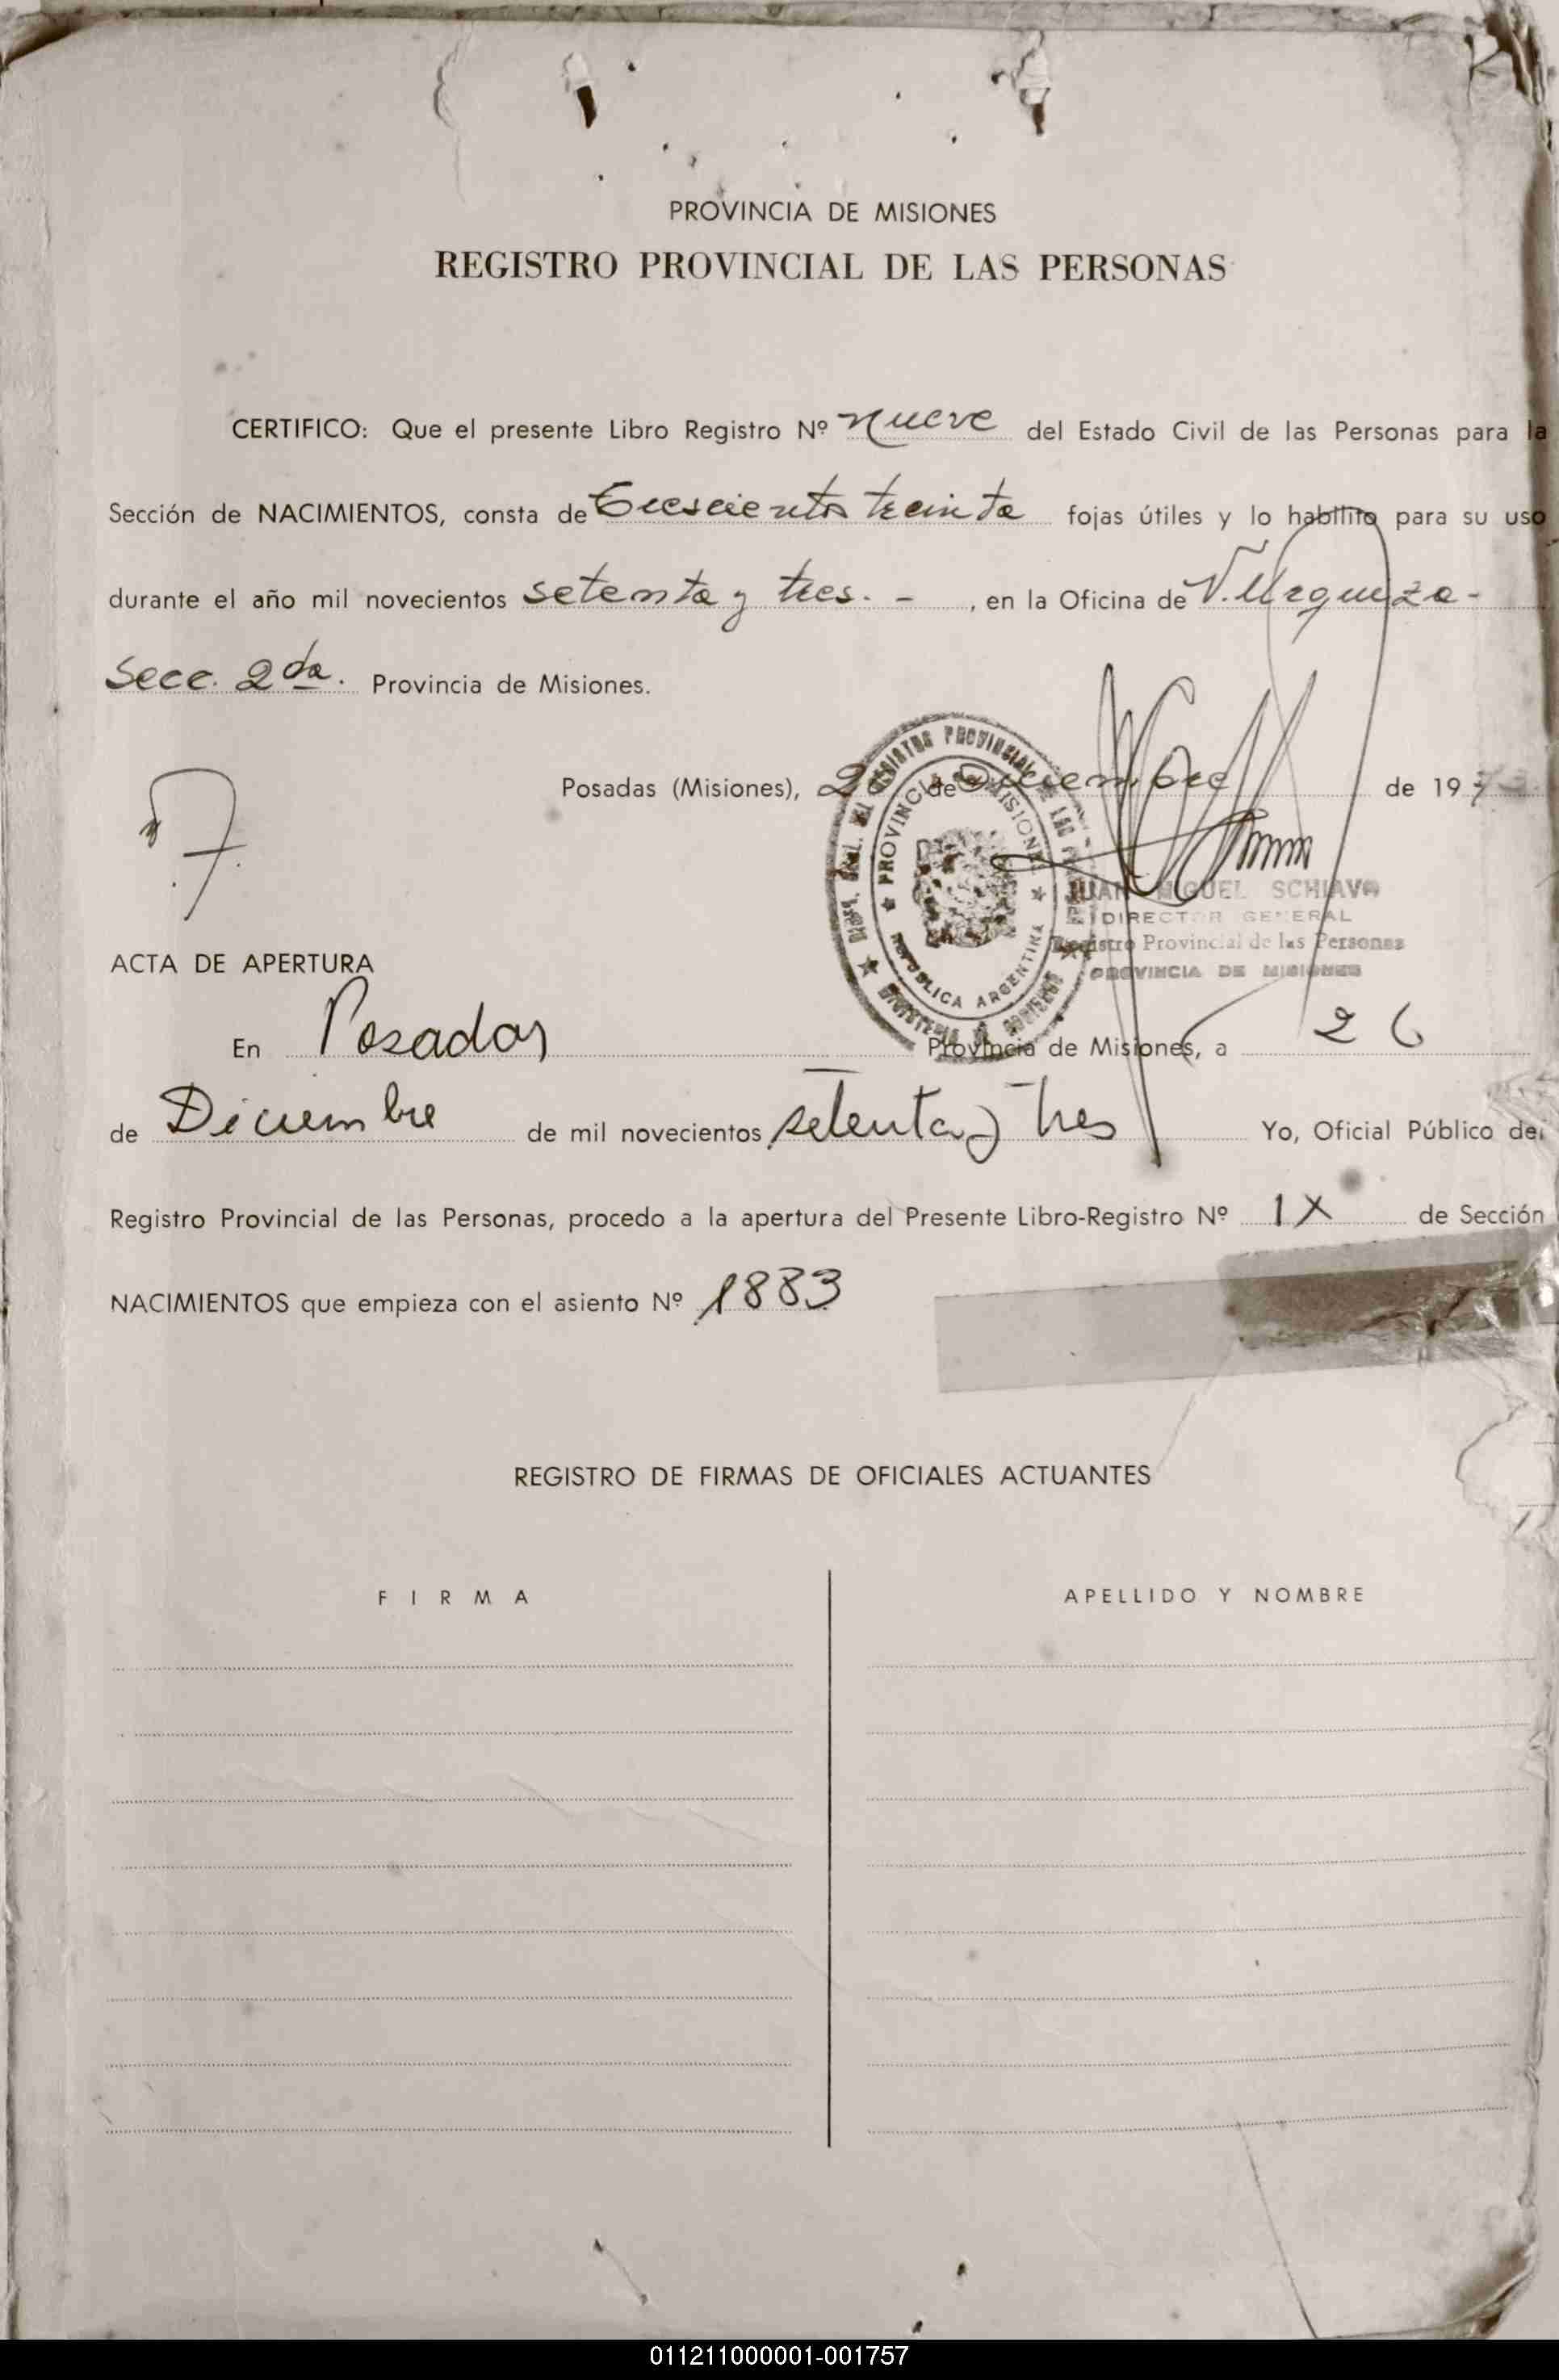 PROVINCIA DE MISIONES
REGISTRO PROVINCIAL DE LAS PERSONAS
CERTIFICO: Que el presente Libro Registro Nº nueve del Estado Civil de las Personas para la
Sección de NACIMIENTOS, consta de trescientos treinta fojas útiles y lo habilito para su uso
durante el año mil novecientos setenta y tres. - , en la Oficina de V. Urquiza -
Secc. 2da. Provincia de Misiones.
Posadas (Misiones), de Diciembre de 1973.
PROVINCIA DE MISIONES
REPUBLICA ARGENTINA
JUAN MIGUEL SCHIAVO
DIRECTOR GENERAL
Registro Provincial de las Personas
PROVINCIA DE MISIONES
ACTA DE APERTURA
En Posadas Provincia de Misiones, a 26
de Diciembre de mil novecientos setenta y tres Yo, Oficial Público del
Registro Provincial de las Personas, procedo a la apertura del Presente Libro-Registro Nº IX de Sección
NACIMIENTOS que empieza con el asiento Nº 1883
REGISTRO DE FIRMAS DE OFICIALES ACTUANTES
FIRMA APELLIDO Y NOMBRE
011211000001-001757